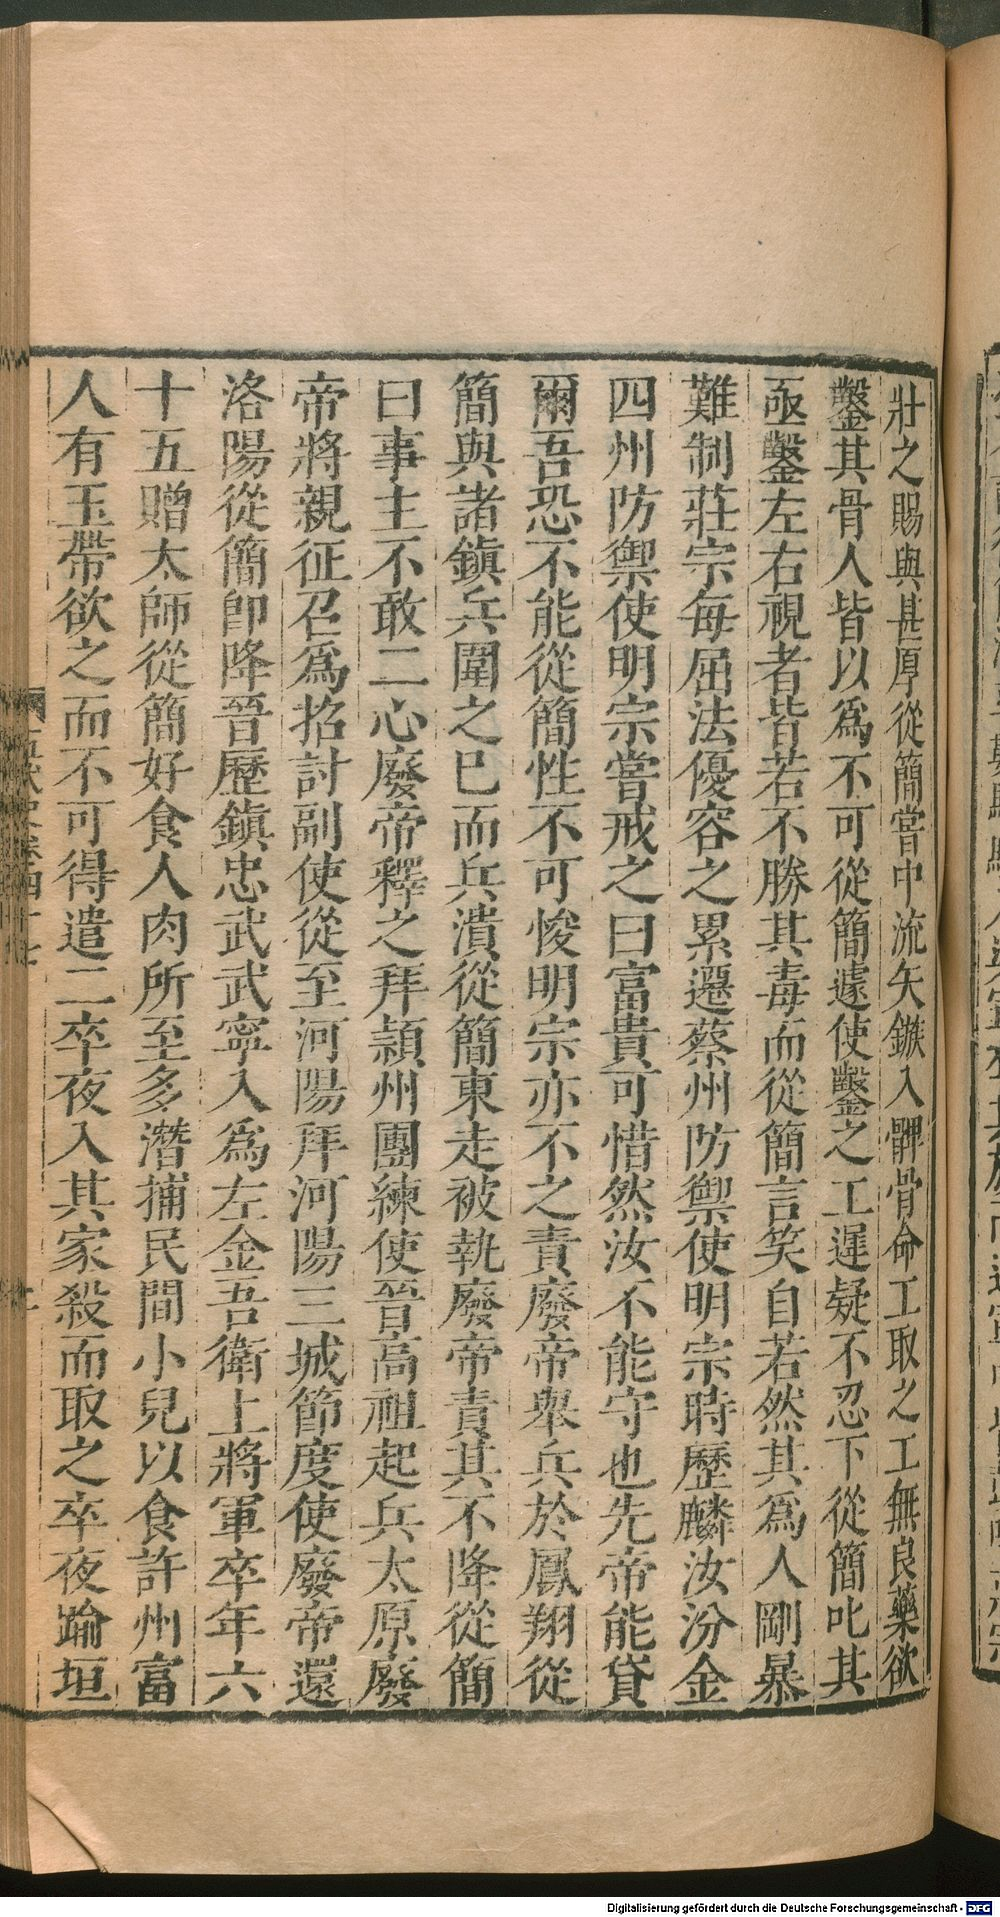 壯之賜與甚厚從簡嘗中流矢鏃入髀骨命工取之工無良藥欲
鑿其骨人皆以爲不可從簡遽使鑿之工遲疑不忍下從簡叱其
亟鑿左右視者皆若不勝其毒而從簡言笑自若然其爲人剛暴
難制莊宗每屈法優容之累遷蔡州防禦使明宗時歷麟汝汾金
四州防禦使明宗嘗戒之曰富貴可惜然汝不能守也先帝能貸
爾吾恐不能從簡性不可悛明宗亦不之責廢帝舉兵於鳳翔從
簡與諸鎮兵圍之巳而兵潰從簡東走被執廢帝責其不降從簡
曰事主不敢二心廢帝釋之拜潁州團練使晉高祖起兵太原廢
帝將親征召爲招討副使從至河陽拜河陽三城節度使廢帝還
洛陽從簡卽降晉歷鎮忠武武寧入爲左金吾衛上將軍卒年六
十五贈太師從簡好食人肉所至多潛捕民間小兒以食許州富
人有玉帶欲之而不可得遣二卒夜入其家殺而取之卒夜踰垣
Digitalisierung gefördert durch die Deutsche Forschungsgemeinschaft - DFG